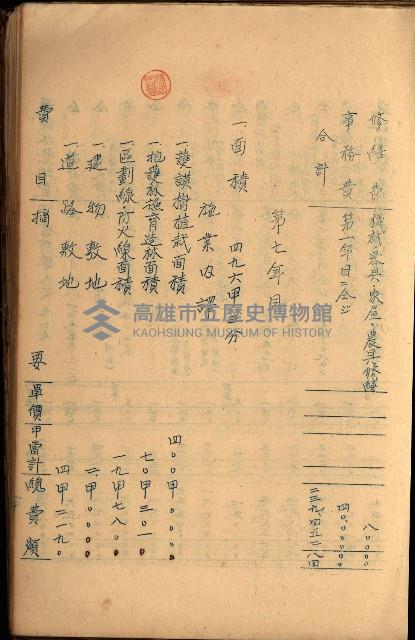 修繕費 機械・器具・家屋・農具修繕 八〇〇〇〇
事務費 第一年目ニ仝シ 四〇〇〇〇〇
合計 二三九、四五二八四
第七年目
一、面積 四九六甲
施業内譯
一、護謨樹植栽面積 四〇〇甲〇〇〇〇
一、抱護林撫育造林面積 七〇甲三〇一〇
一、區劃線防火線面積 一九甲七八〇〇
一、建物敷地 二甲〇〇〇〇
一、道路敷地 四甲二一九〇
費目 摘要 單價 甲當計 總費額
高雄市立歷史博物館
KAOHSIUNG MUSEUM OF HISTORY